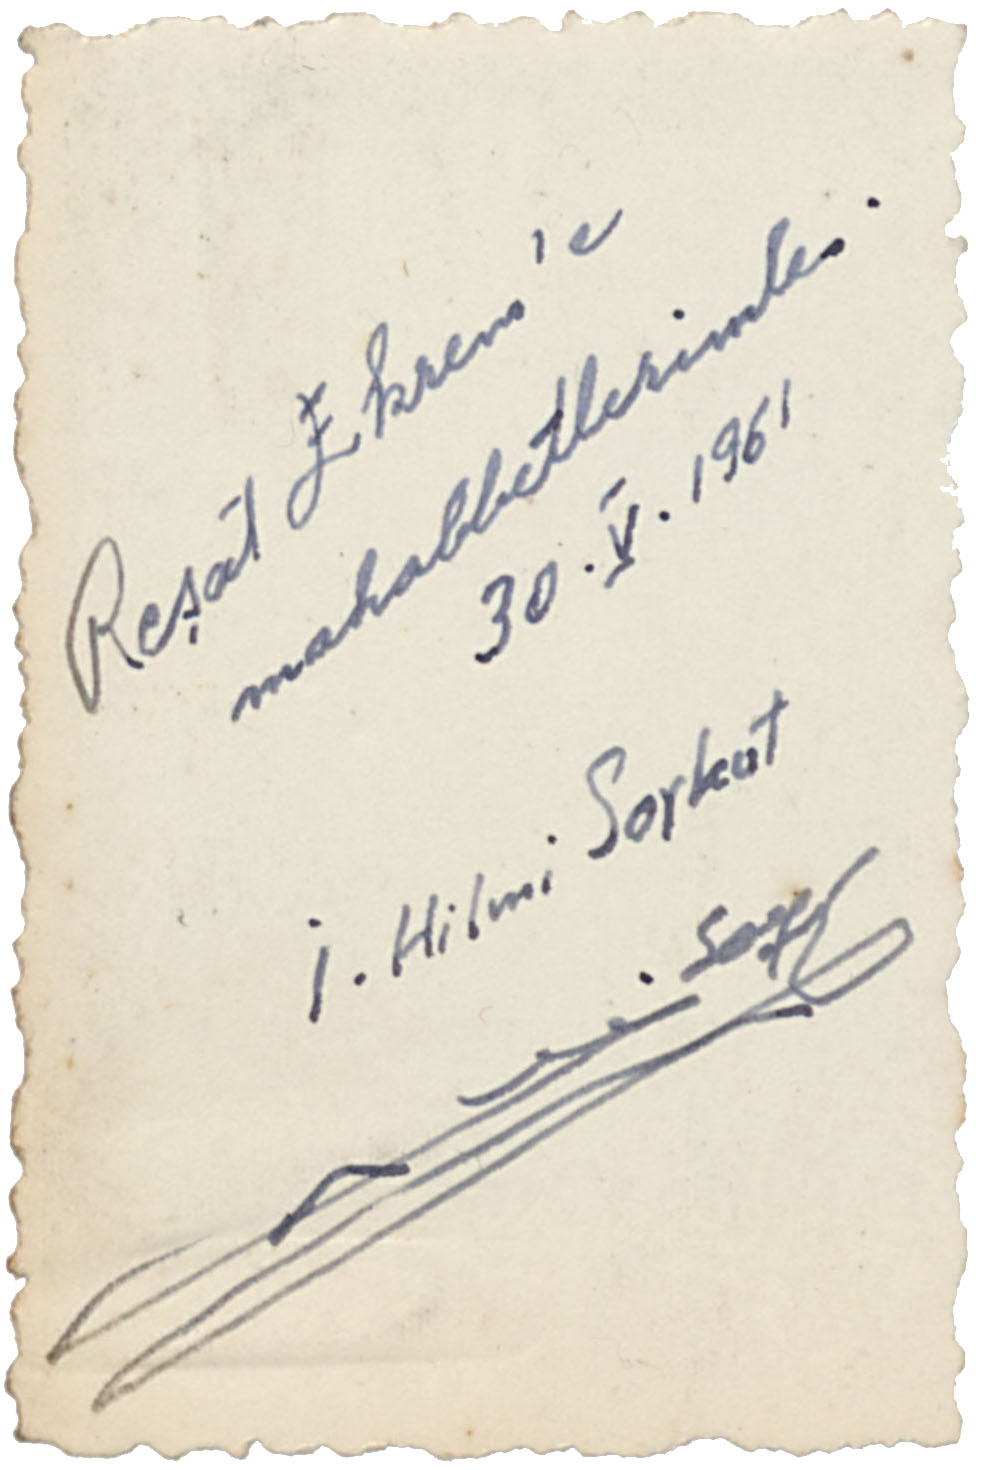 Reşat Ekrem'e
mahabbetlerimle.
30.V.1961
İ. Hilmi Soykut